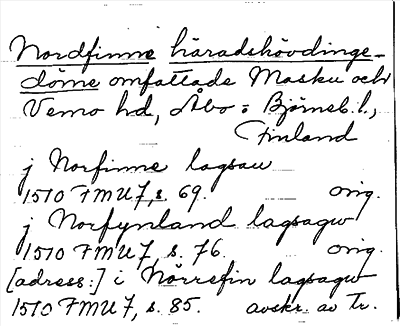 Nordfinne häradshövdinge-
döme omfattade Masku och
Vemo hd, Åbo = Björneb. l.,
Finland
j Norfinne lagsau
1510 FMU 7, s. 69. orig.
j Norfynland lagsagw
1510 FMU 7, s. 76. orig.
[adress:] i Nörrefin lagsagw
1510 FMU 7, s. 85. avskr. av Tr.